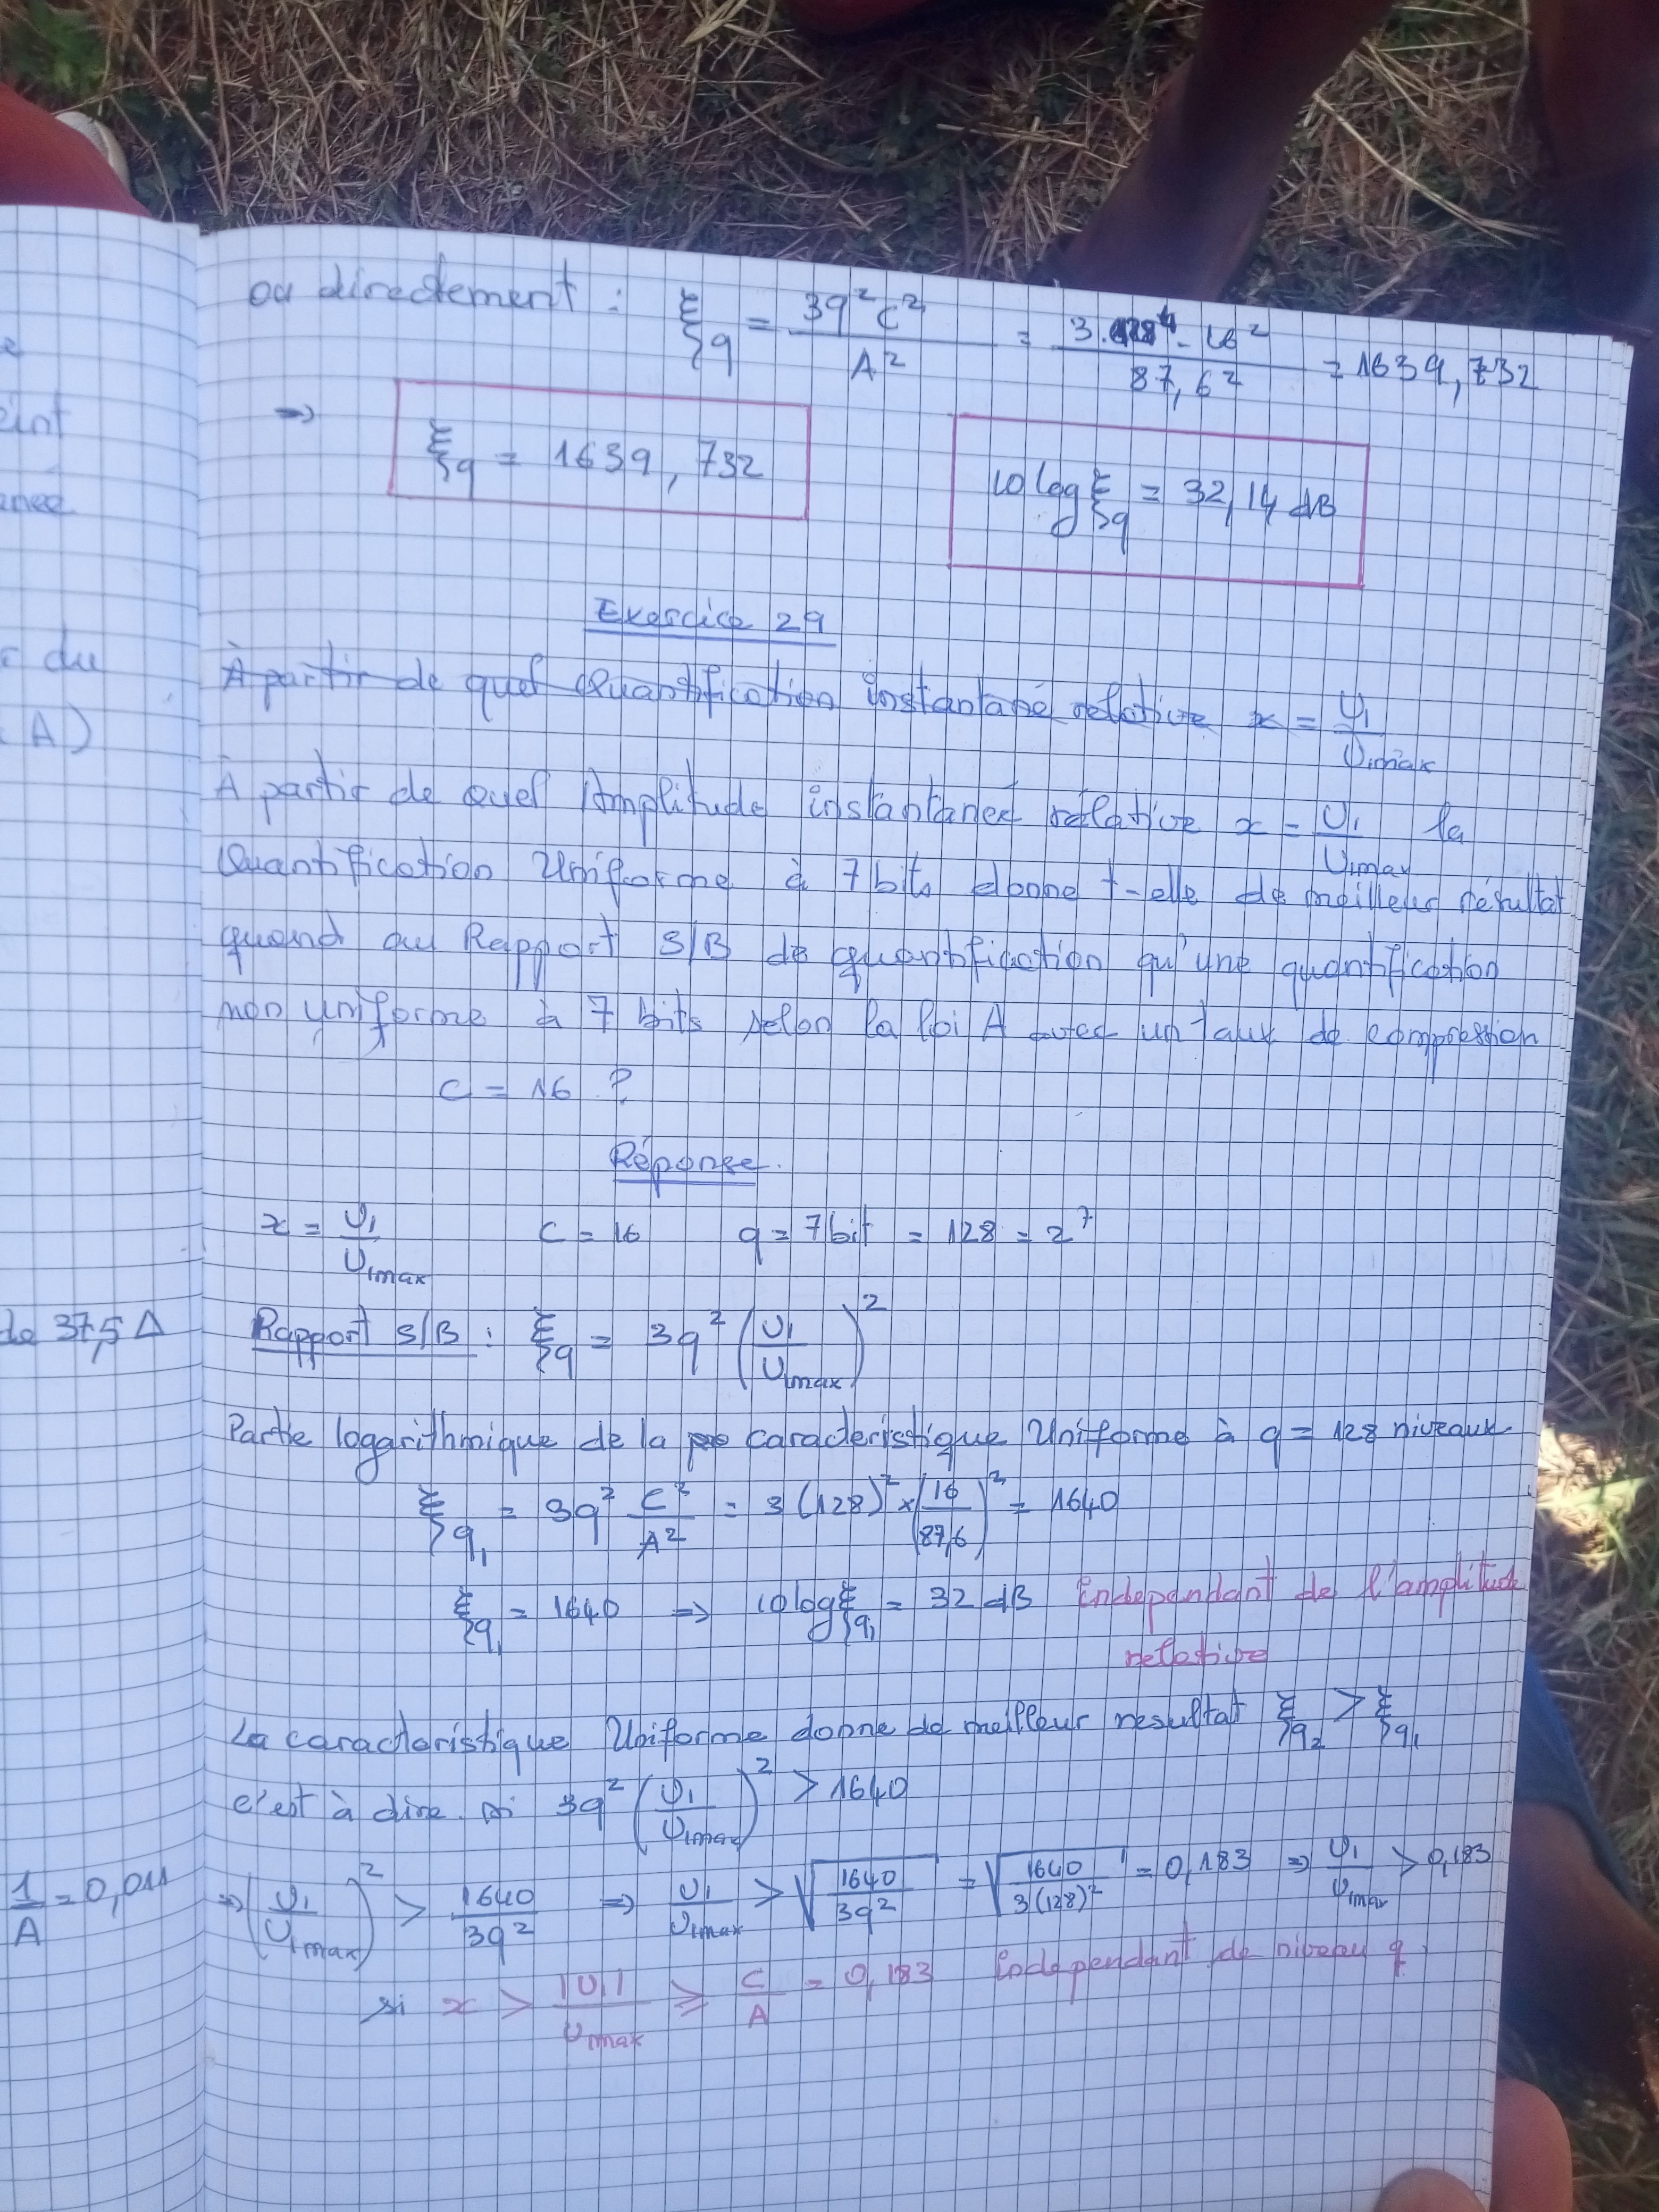 ou directement : ξq = 3q²c² / A² = 3. . 16² / 87,6² = 1639,732
⇒ ξq = 1639,732    10 log ξq = 32,14 dB
Exercice 29
À partir de quel Quantification instantané relative x = U1 / U1max
À partir de quel Amplitude instantaneé rélative x = U1 / U1max la
Quantification Uniforme à 7 bits donne t-elle de meilleur résultat
quand au Rapport S/B de quantification qu'une quantification
non uniforme à 7 bits selon la loi A avec un taux de compression
C = 16 ?
Réponse.
x = U1 / U1max    C = 16    q = 7bit = 128 = 2⁷
Rapport S/B : ξq = 3q² (U1 / U1max)²
Partie logarithmique de la caracteristique Uniforme à q = 128 niveaux
ξq1 = 3q² C² / A² = 3 (128)² × (16 / 87,6)² = 1640
ξq1 = 1640 ⇒ 10 log ξq1 = 32 dB independant de l'amplitude
relative
La caracteristique Uniforme donne de meilleur resultat ξq2 > ξq1
c'est à dire si 3q² (U1 / U1max)² > 1640
⇒ (U1 / U1max)² > 1640 / 3q² ⇒ U1 / U1max > √(1640 / 3q²) = √(1640 / 3(128)²) = 0,183 ⇒ U1 / U1max > 0,183
si x > |U1| / U1max ⩾ C / A = 0,183 independant de niveau q
int
du
A)
de 37,5 Δ
1 / A = 0,011